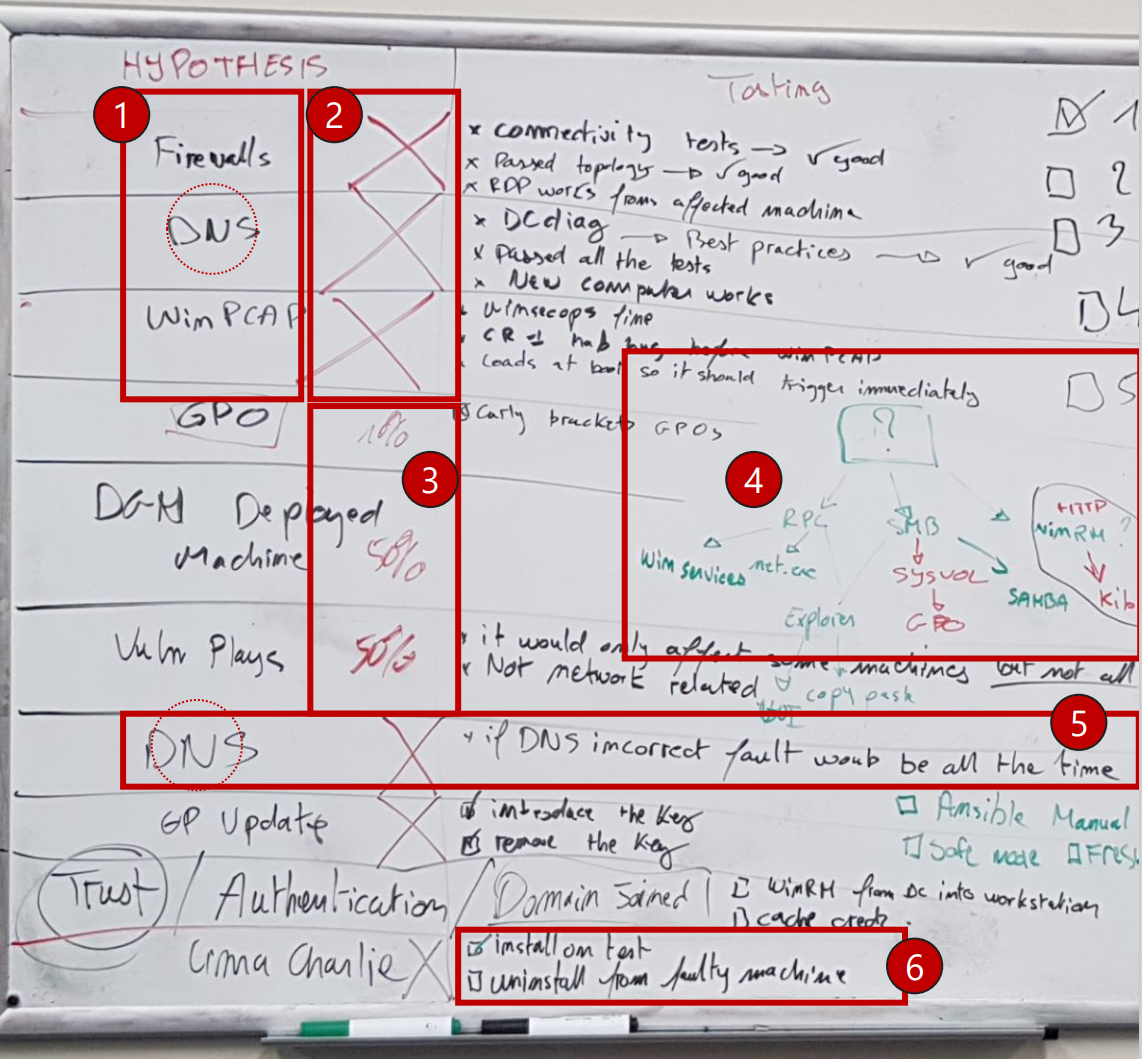 HYPOTHESIS
Testing
1
2
Firewalls
x connectivity tests → ✓ good
x Passed topology → ✓ good
x RDP works from affected machine
☑ 1
☐ 2
☐ 3
☐ 4
☐ 5
DNS
x DCdiag → Best practices → ✓ good
x Passed all the tests
x New computer works
WinPCAP
Loads at boot so it should trigger immediately
GPO
10%
Curly brackets GPOs
3
4
?
RPC
SMB
HTTP
WinRM ?
Win services
net.exe
SYSVOL
SAMBA
Kib
Explorer
GPO
Deployed
Machine
50%
Vuln Plays
50%
it would only affect some machines but not all
Not network related
copy paste
5
DNS
if DNS incorrect fault would be all the time
GP Update
introduce the Key
remove the Key
☐ Ansible Manual
☐ Safe mode ☐ Fresh
Trust / Authentication / Domain Joined
☐ WinRM from DC into workstation
☐ cache creds.
Lima Charlie
☑ install on test
☐ uninstall from faulty machine
6